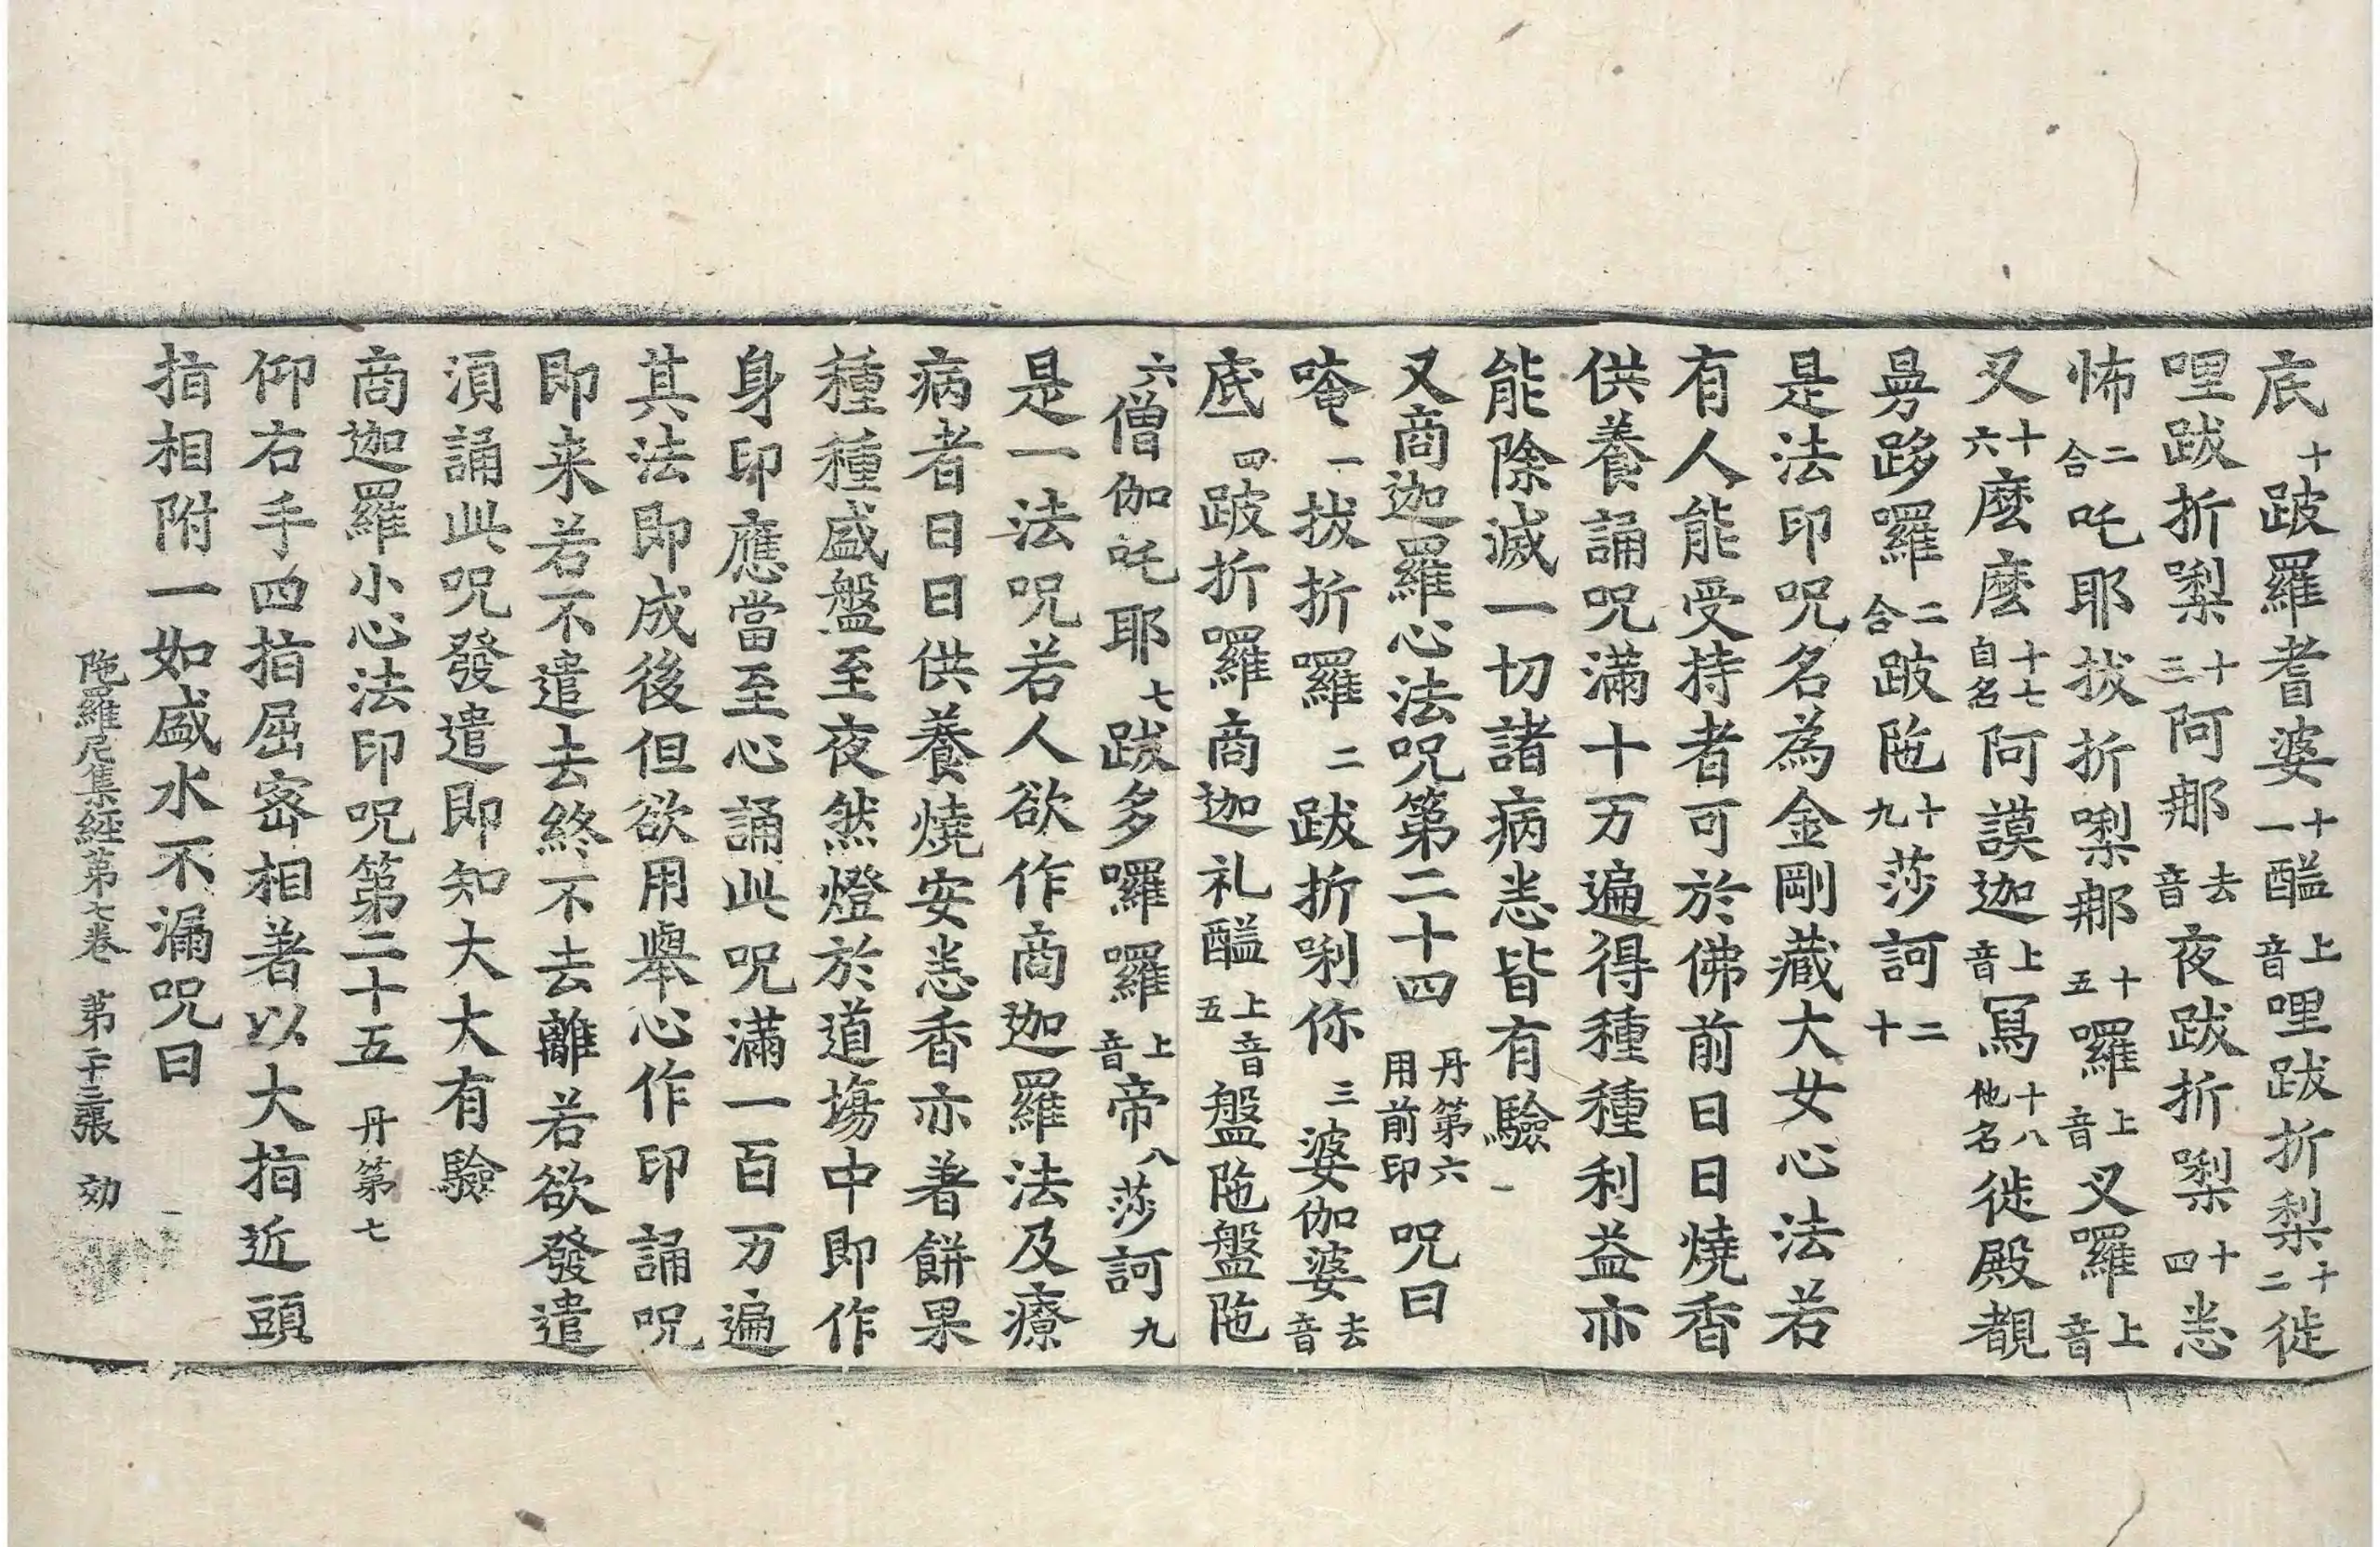 底十跛羅耆婆十一醯上音哩跋折梨十二徙
哩跋折㗚十三阿那去音夜跋折㗚十四恙
怖二合吒耶拔折㗚那十五囉上音叉羅上音
叉十六麼麼十七自名阿謨迦上音冩十八他名徙殿覩
曩跢囉二合跛陁十九莎訶二十
是法印呪名為金剛藏大女心法若
有人能受持者可於佛前日日燒香
供養誦呪滿十万遍得種種利益亦
能除滅一切諸病恙皆有驗
又商迦羅心法呪第二十四丹第六用前印呪曰
唵一拔折囉二跋折唎你三婆伽婆去音
底四跛折囉商迦礼醯五上音盤陁盤陁
六僧伽吒耶七跋多囉囉上音帝八莎訶九
是一法呪若人欲作商迦羅法及療
病者日日供養燒安悉香亦著餅果
種種盛盤至夜然燈於道場中即作
身印應當至心誦此呪滿一百万遍
其法即成後但欲用舉心作印誦呪
即来若不遣去終不去離若欲發遣
湏誦此呪發遣即知大大有驗
商迦羅小心法印呪第二十五丹第七
仰右手四指屈宻相著以大指近頭
指相附一如盛水不漏呪曰
陁羅尼集経第七卷 第二十三張 効